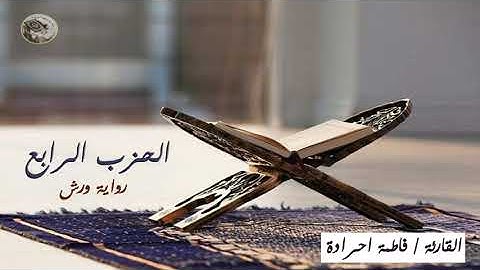 الحزب الرابع
رواية ورش
القارئة / فاطمة احرادة